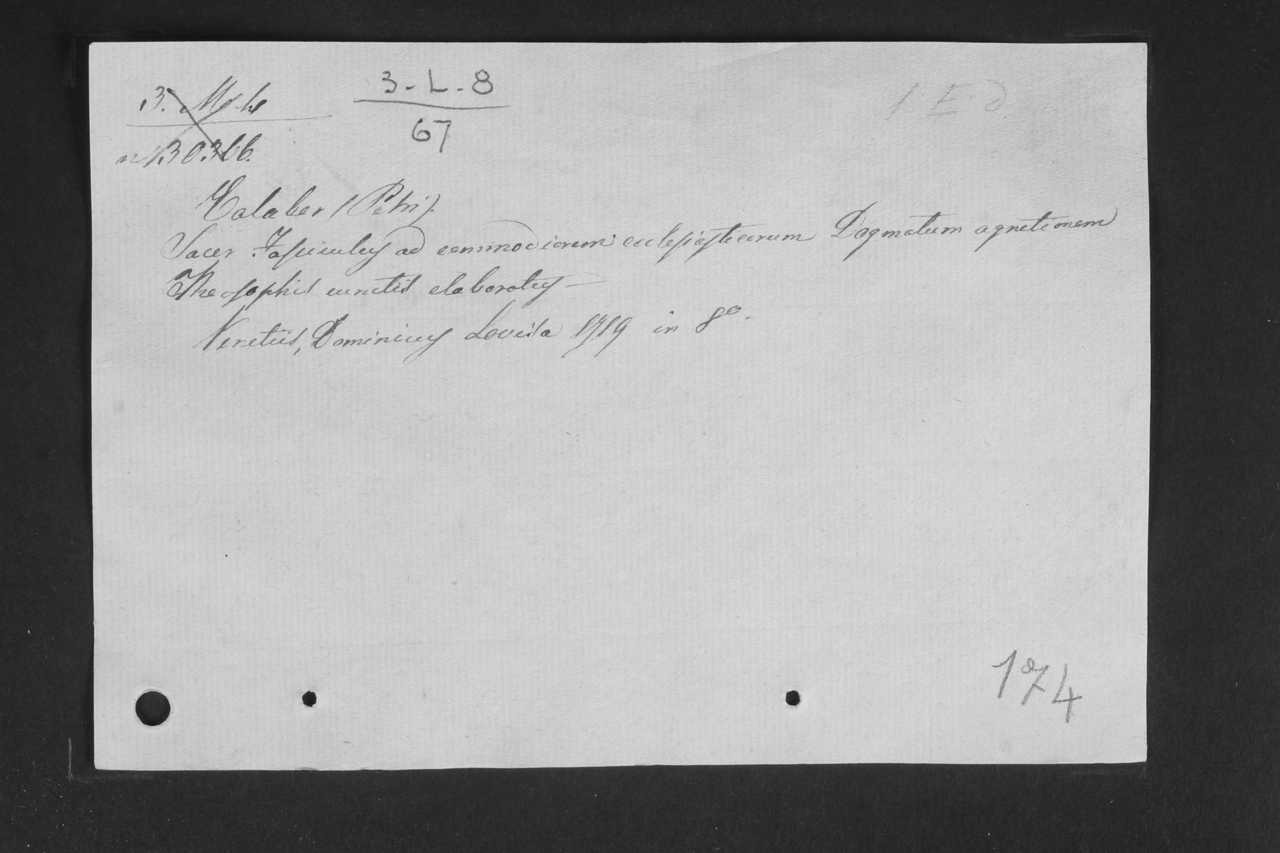 3-L-8
67
Calaber (Petri).
Sacer Fasciculus ad commodiorem ecclesiasticorum Dogmatum agnitionem
Theosophis cunctis elaboratus —
Venetiis, Dominicus Lovisa 1719 in 8º.
174